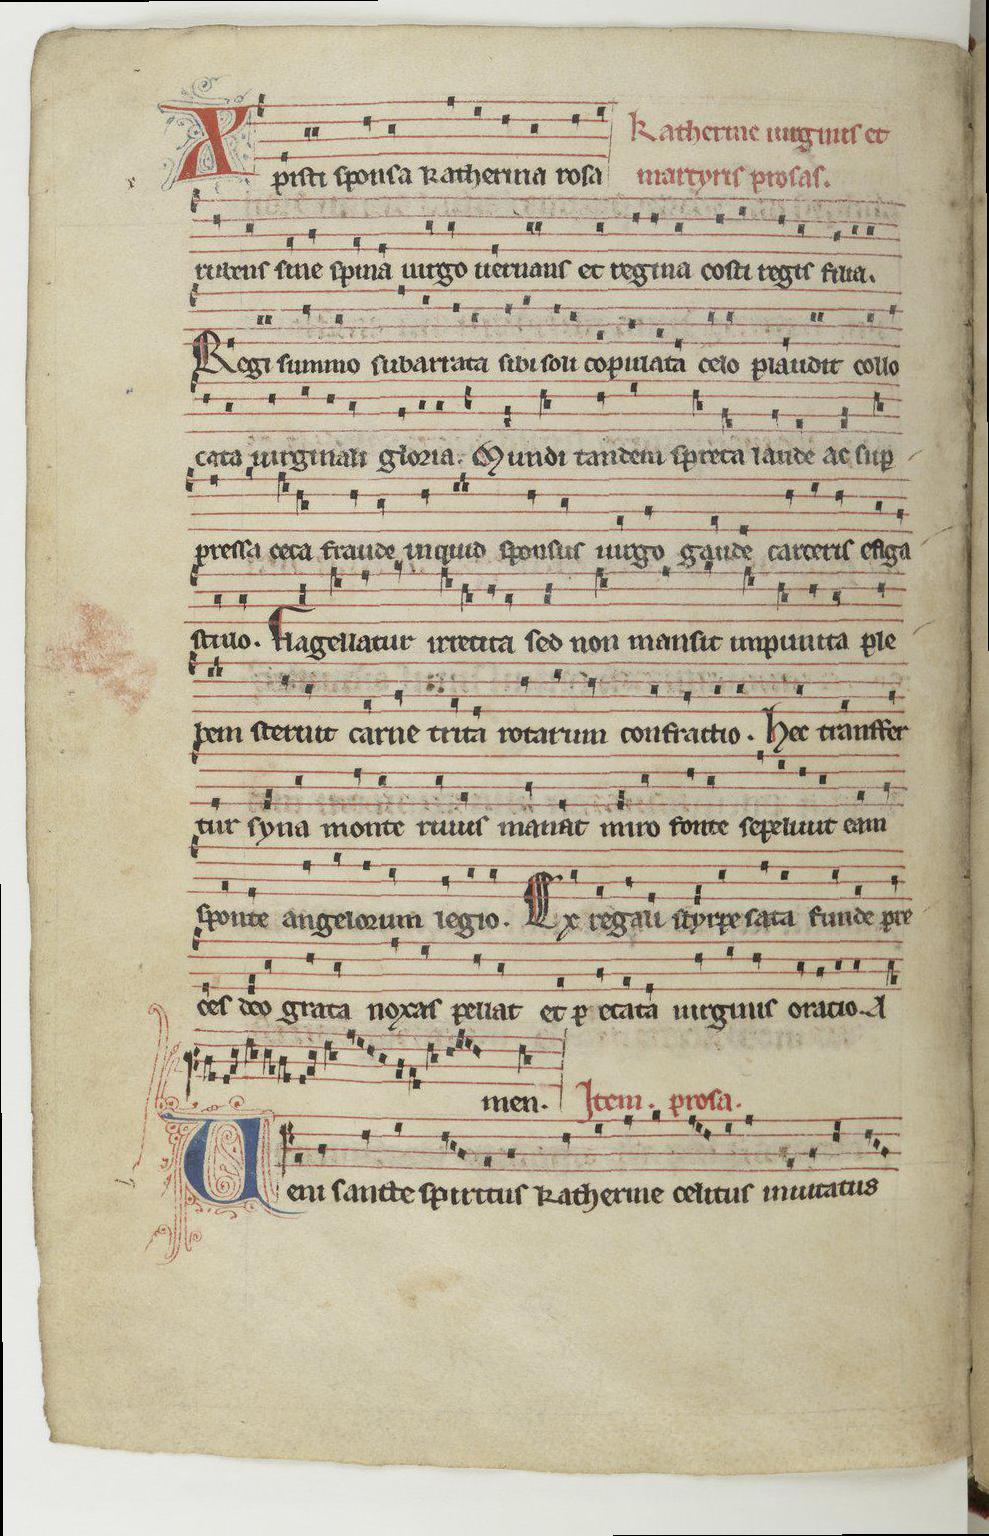 Katherine uirginis et
Xpisti sponsa katherina rosa martyris prosas.
rubens sine spina uirgo uernans et regina costi regis filia.
Regi summo subarrata sibi soli copulata celo plaudit collo
cata uirginali gloria. Mundi tandem spreta laude ac sup
pressa ceca fraude inquid sponsus uirgo gaude carceris
Flagellatur irretita sed non mansit inpunita ple
bem sternit carne trita rotarum confractio. Hec transffer
tur syna monte riuus manat miro fonte sepeliuit eam
sponte angelorum legio. Ex regali styrpe sata funde pre
ces deo grata noxas pellat et pecata uirginis oratio. A
men. Item. prosa.
Veni sancte spiritus katherine celitus inuitatus